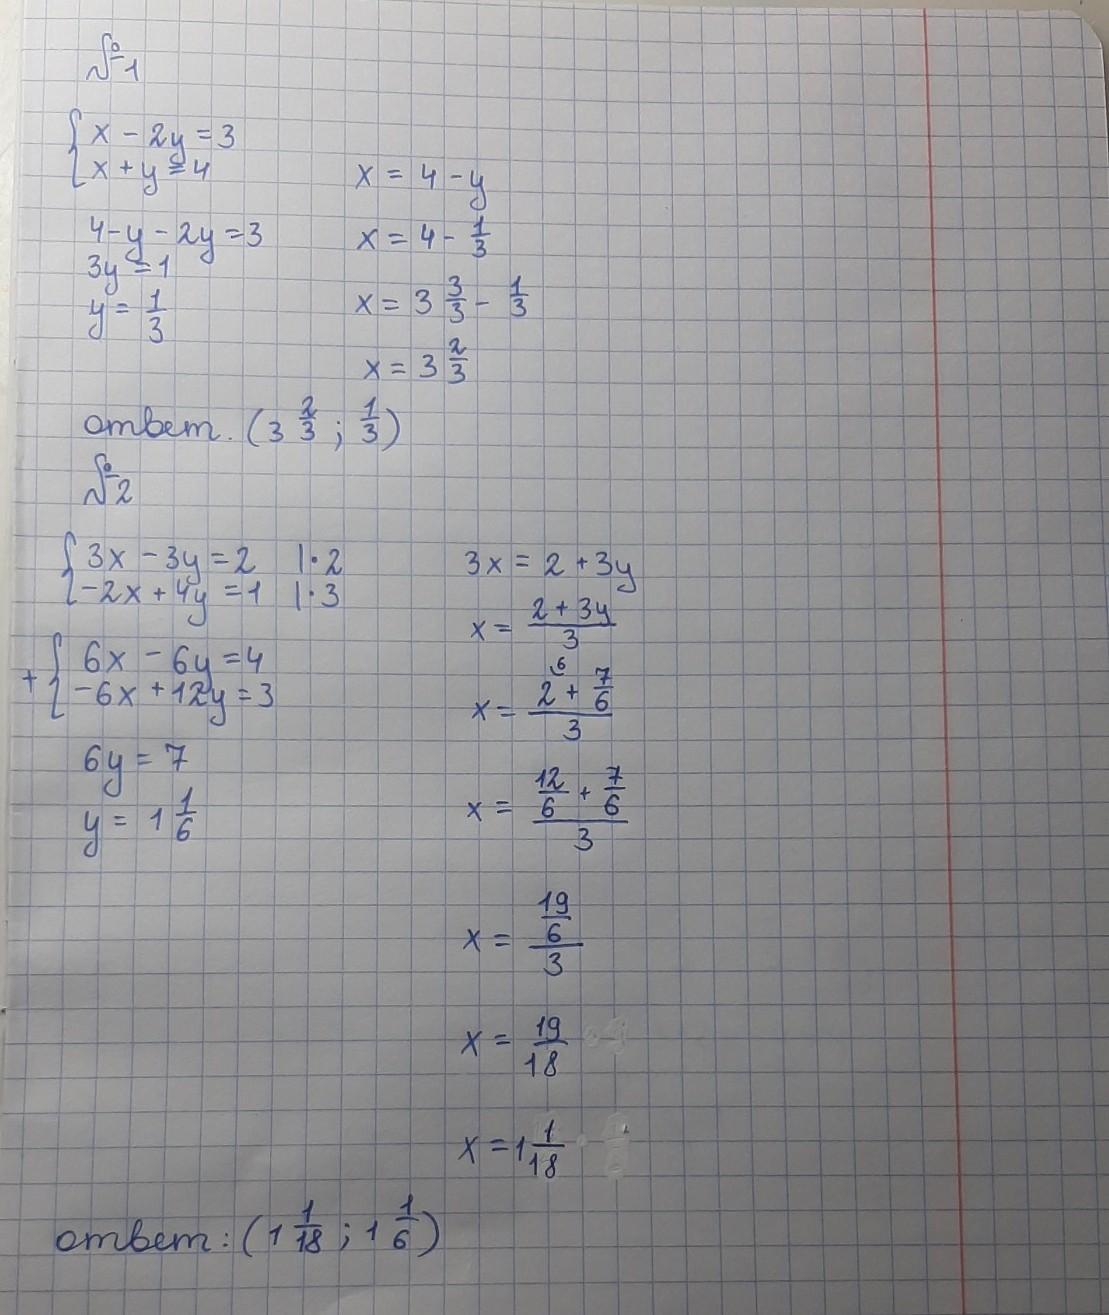 №1
{ x - 2y = 3
{ x + y = 4
4 - y - 2y = 3
3y = 1
y = 1/3
x = 4 - y
x = 4 - 1/3
x = 3 3/3 - 1/3
x = 3 2/3
ответ. (3 2/3 ; 1/3)
№2
{ 3x - 3y = 2 |·2
{ -2x + 4y = 1 |·3
+ { 6x - 6y = 4
{ -6x + 12y = 3
6y = 7
y = 1 1/6
3x = 2 + 3y
x = (2 + 3y)/3
x = (2^6 + 7/6)/3
x = (12/6 + 7/6)/3
x = (19/6)/3
x = 19/18
x = 1 1/18
ответ: (1 1/18 ; 1 1/6)